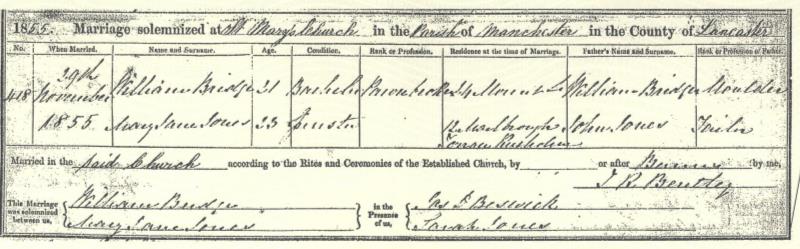 1855. Marriage solemnized at St Mary's Church in the Parish of Manchester in the County of Lancaster
No. When Married. Name and Surname. Age. Condition. Rank or Profession. Residence at the time of Marriage. Father's Name and Surname. Rank or Profession of Father.
418 29th November 1855 William Bridge 21 Bachelor Pawnbroker 24 Mount St William Bridge Moulder
Mary Jane Jones 23 Spinster 12 Marlbrough Terrace Rusholme John Jones Tailor
Married in the said Church according to the Rites and Ceremonies of the Established Church, by or after Banns by me,
J. R. Bentley
This Marriage was solemnized between us, William Bridge Mary Jane Jones in the Presence of us, Jas. F. Beswick Sarah Jones